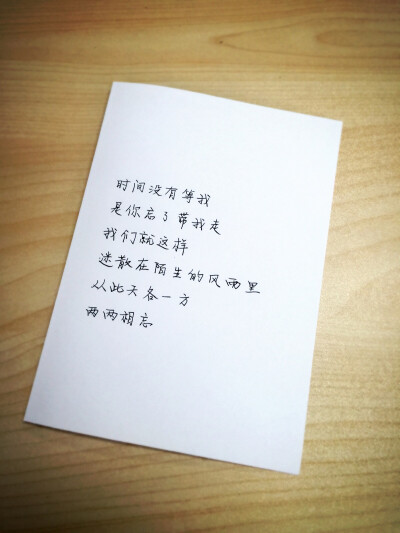 时间没有等我
是你忘了带我走
我们就这样
迷散在陌生的风雨里
从此天各一方
两两相忘